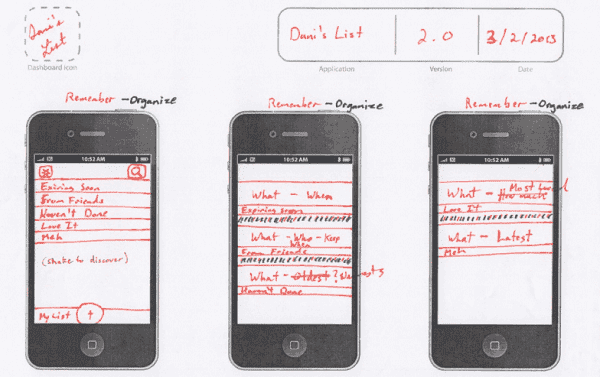 Dani's
List
Dashboard icon
Dani's List
2.0
3/2/2013
Application
Version
Date
Remember - Organize
Remember - Organize
Remember - Organize
10:52 AM
Expiring Soon
From Friends
Haven't Done
Love It
Meh
(Shake to discover)
My List
10:52 AM
What - When
Expiring Soon
What - Who - Keep
When
From Friends
What - Oldest ?
Haven't Done
10:52 AM
What - Most
Love It
What - Latest
Meh